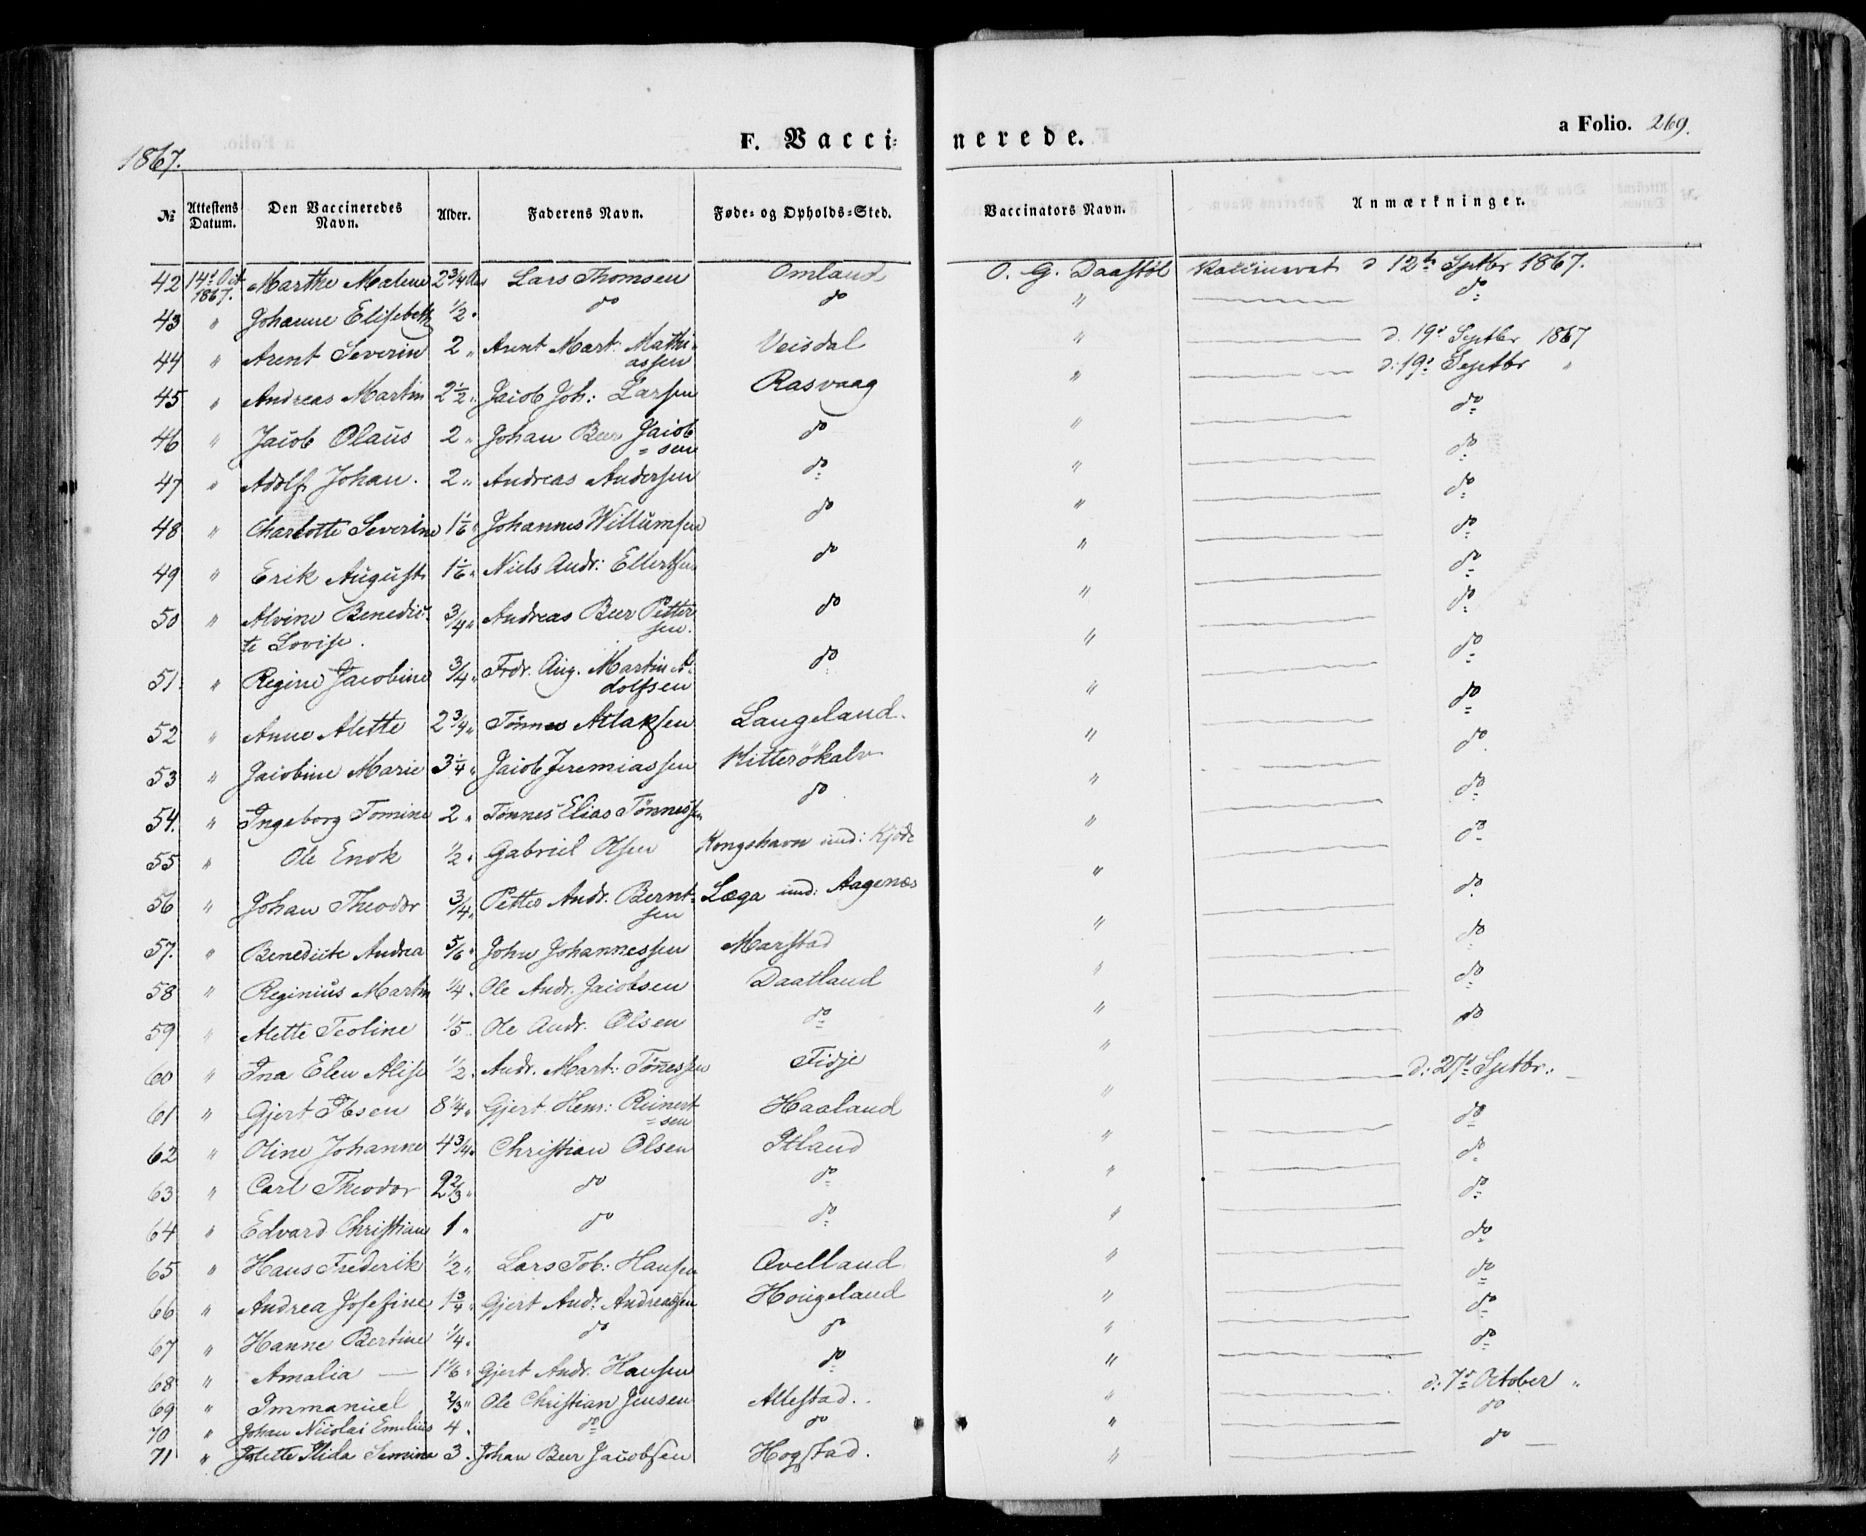 1867.
F. Vacci-
nerede.
a Folio. 269.
№ Attestens Datum. Den Vaccineredes Navn. Alder. Faderens Navn. Føde- og Opholds-Sted. Vaccinators Navn. Anmærkninger.
42 14d Oct 1867. Marthe Malene 2 3/4 Lars Thomsen Omland O. G. Daastøl Vaccineret d 12te Septbr 1867.
43 " Johanne Elisebeth 1/2 " do do " — do
44 " Arent Severin 2 " Arent Mart: Mathi-assen Veisdal " — d. 19d Septbr 1867
45 " Andreas Martin 2 1/2 " Jacob Joh: Larsen Rasvaag " — d: 19d Septbr "
46 " Jacob Olaus 2 " Johan Beer Jacob=sen do " — do
47 " Adolf Johan. 2 " Andreas Andersen do " — do
48 " Charlotte Severine 1 1/6 " Johannes Willumsen do " — do
49 " Erik August 1 1/6 " Niels Andr: Ellertsen do " — do
50 " Alvine Benedic-te Lovise. 3/4 " Andreas Beer Petter-sen. do " — do
51. " Regine Jacobine 3/4 " Fredr. Aug. Martin A-dolfsen do " — do
52 " Anne Alette 2 3/4 " Tønnes Atlaksen Langeland. " — do
53 " Jacobine Marie 3 1/4 " Jacob Jeremiassen Hitterökalv " — do
54. " Ingeborg Tomine 2 " Tönnes Elias Tönnessen do " — do
55 " Ole Enok 1/2 " Gabriel Olsen Kongshavn und: Kjöde " — do
56 " Johan Theodor 3/4 " Petter Andr. Bernt-sen Læga und: Aagenæs " — do
57. " Benedicte Andrea 5/6 " John Johannessen Marstad " — do
58 " Reginius Martin 1/4 " Ole Andr. Jacobsen Daatland " — do
59 " Alette Teoline 1/5 " Ole Andr. Olsen do " — do
60 " Ina Elen Alise 1/2 " Andr. Mart: Tönessen Fidje " — d: 27d Septbr: —
61 " Gjert Ibsen 8 1/4 " Gjert Henr: Reinert=sen Haaland " — do
62 " Oline Johanne 4 3/4 " Christian Olsen Itland " — do
63 " Carl Theodor 2 2/3 " do do " — do
64 " Edvard Christian 1 " do do " — do
65 " Hans Frederik 1/2 " Lars Tob: Hansen Qvelland " — do
66 " Andrea Josefine 1 3/4 " Gjert Andr. Andreassen Hougeland " — do
67 " Hanne Bertine 1/4 " do do " — do
68 " Amalia — 1 1/6 " Gjert Andr. Hansen do " — d: 7d October "
69 " Immanuel 2/3 " Ole Christian Jensen Allestad. " — do
70 " Johan Nicolai Emelius 4 " do do " — do
71 " Jolette Ilida Semine 3 " Johan Beer Jacobsen Hogstad. "